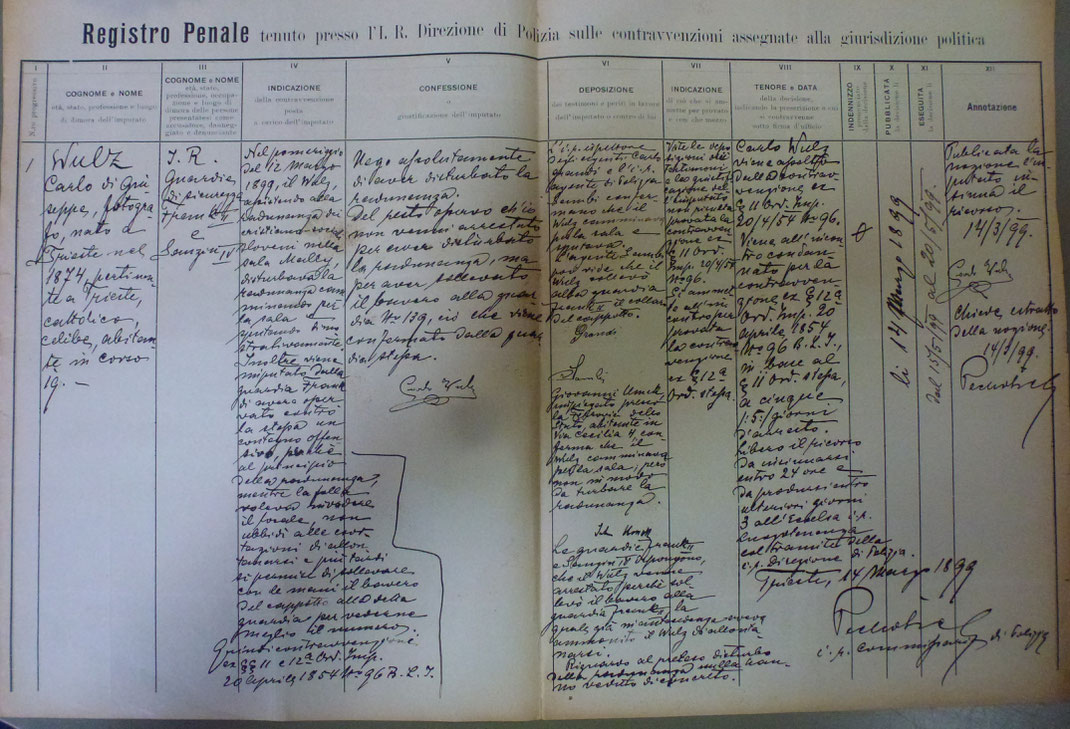 Registro Penale tenuto presso l'I. R. Direzione di Polizia sulle contravvenzioni assegnate alla giurisdizione politica
I
N.ro progressivo
II
COGNOME e NOME
età, stato, professione e luogo
di dimora dell'imputato
III
COGNOME e NOME
età, stato,
professione, occupa-
zione e luogo di
dimora delle persone
presentatesi come
accusatrice, danneg-
giate o denuncianti
IV
INDICAZIONE
della contravvenzione
posta
a carico dell'imputato
V
CONFESSIONE
o
giustificazione dell'imputato
VI
DEPOSIZIONE
dei testimoni e periti in favore
dell'imputato o contro di lui
VII
INDICAZIONE
di ciò che si am-
mette per provato
e con che mezzo
VIII
TENORE e DATA
della decisione,
indicando la prescrizione a cui
si contravvenne
sotto firma d'ufficio
IX
INDENNIZZO
X
PUBBLICATA
la decisione li
XI
ESEGUITA
la decisione li
XII
Annotazione
1
Wulz
Carlo di Giu-
seppe, fotogra-
fo, nato a
Trieste nel
1874, pertinen-
te a Trieste,
cattolico,
celibe, abitan-
te in corso
19. –
I. R.
Guardia
di sicurezza
Frank II
e
Sanzin IV
Nel pomeriggio
del 12 Marzo
1899, il Wulz,
assistendo alla
radunanza dei
cristiano sociali
sloveni nella
sala Mally,
disturbava la
radunanza cam-
minando per
la sala e
sputando dimo-
strativamente
Inoltre viene
imputato dalla
guardia Frank
di avere osser-
vato contro
la stessa un
contegno offen-
sivo, perchè
al principio
della radunanza,
mentre la folla
voleva invadere
il locale, non
ubbidì alle esor-
tazioni di allon-
tanarsi e più tardi
si permise di sollevare
con le mani il bavero
del cappotto alla detta
guardia per vederne
meglio il numero.
Quindi contravvenzioni
ex §§ 11 e 12a Ord. Imp.
20 aprile 1854 No 96 B. L. I.
Nego assolutamente
di aver disturbato la
radunanza.
Del resto osservo ch'io
non venni arrestato
per aver disturbato
la radunanza, ma
per aver sollevato
il bavero alla guar-
dia No 139, ciò che viene
confermato dalla guar-
dia stessa.
Carlo Wulz
L'i. r. ispettore
degli agenti Carlo
Grandi e l'i. r.
agente di Polizia
Sambi confer-
mano che il
Wulz camminava
per la sala e
sputava.
L'agente Sambi
poi vide che il
Wulz sollevò
alla guardia
Frank II il collare
del cappotto.
Grandi
Sambi
Giovanni
impiegato presso
la ferrovia dello
Stato, abitante in
Via Cecilia 4 con-
ferma che il
Wulz camminava
per la sala, però
non in modo
da turbare la
radunanza.
Le guardie Frank II
e Sanzin IV depongono,
che il Wulz venne
arrestato perchè sol-
levò il bavero alla
guardia Frank, la
quale già in antecedenza aveva
ammonito il Wulz di allonta-
narsi.
Riguardo al preteso disturbo
della radunanza nulla han-
no veduto di concreto.
Viste le depo-
sizioni dei
testimoni
e la giustifi-
cazione del-
l'imputato
non risulta
provata la
contravven-
zione ex
§ 11 Ord.
Imp. 20/4/54
No 96.
Si ammet-
te all'in-
contro per
provata
la contrav-
venzione
ex § 12a
Ord. stessa.
Carlo Wulz
viene assolto
dalla contrav-
venzione ex
§ 11 Ord. Imp.
20/4/54 No 96.
Viene all'incon-
tro condan-
nato per la
contravven-
zione ex § 12a
Ord. Imp. 20
aprile 1854
No 96 B. L. I.,
in base al
§ 11 Ord. stessa,
a cinque
/: 5 :/ giorni
d'arresto.
Libero il ricorso
da insinuarsi
entro 24 ore e
da prodursi entro
ulteriori giorni
3 all'Eccelsa i. r.
Luogotenenza
col tramite della
i. r. Direzione di Polizia.
Trieste, 14 Marzo 1899
i. r. commissario di Polizia
li 14 Marzo 1899
dal 15/5/99 al 20/5/99.
Publicata la
nozione l'im-
putato in-
sinua il
ricorso.
14/3/99.
Carlo Wulz
Chiede estratto
della nozione.
14/3/99.